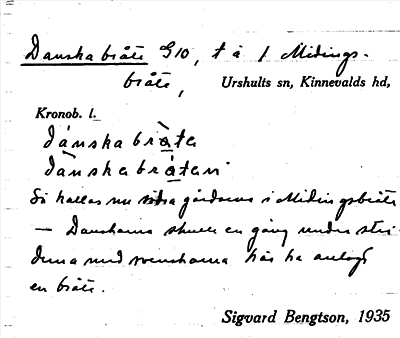 Danska bråte G10, t å 1 Midings-
bråte,
Urshults sn, Kinnevalds hd,
Kronob. l.
dánskabràta
dànskabråten
Så kallas nu södra gårdarna i Midingsbråte
— Danskarna skulle en gång under stri-
derna med svenskarna här ha anlagt
en bråte.
Sigvard Bengtson, 1935